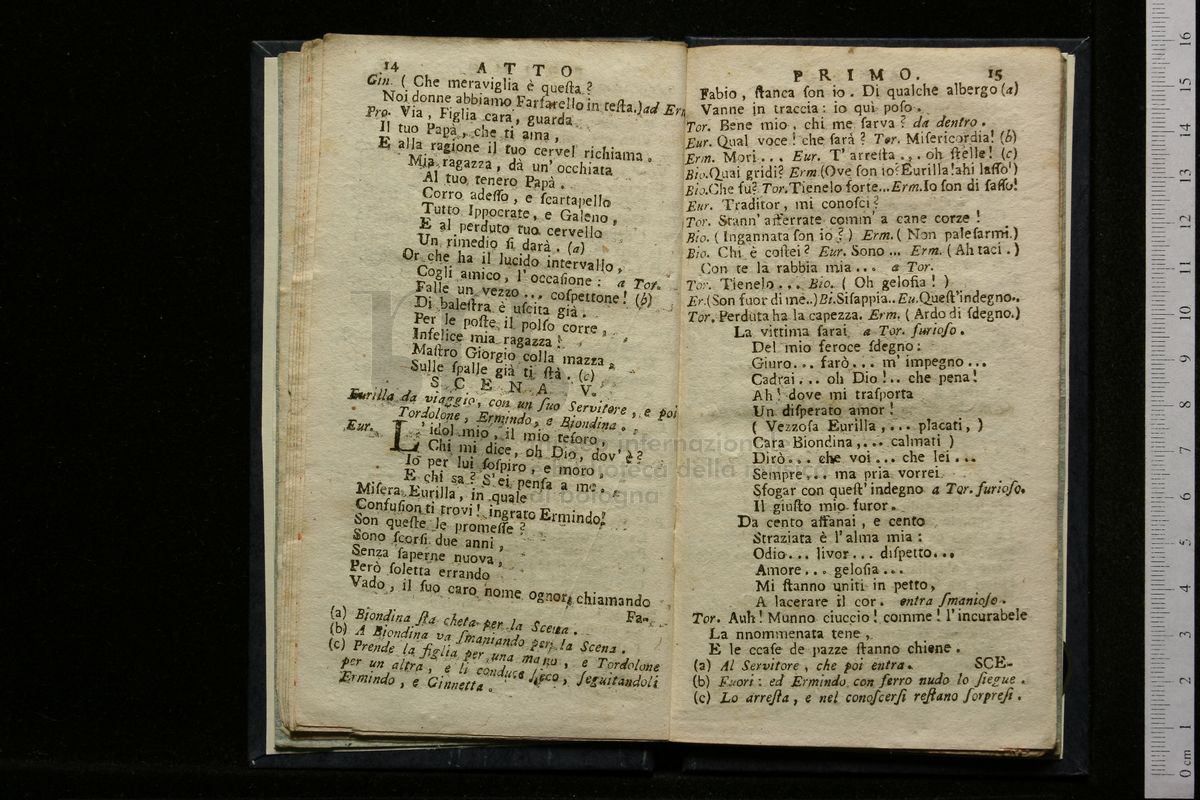 14 ATTO
Gin. ( Che meraviglia è queſta ?
Noi donne abbiamo Farfarello in teſta.) ad Erm
Pro. Via, Figlia cara, guarda
Il tuo Papà, che ti ama,
E alla ragione il tuo cervel richiama.
Mia ragazza, dà un' occhiata
Al tuo tenero Papà.
Corro adeſſo, e ſcartapello
Tutto Ippocrate, e Galeno,
E al perduto tuo cervello
Un rimedio ſi darà. (a)
Or che ha il lucido intervallo,
Cogli amico, l' occaſione : a Tor.
Falle un vezzo ... coſpettone! (b)
Di baleſtra è uſcita già.
Per le poſte il polſo corre,
Infelice mia ragazza!
Maſtro Giorgio colla mazza,
Sulle ſpalle già ti ſtà. (c)
SCENA V.
Eurilla da viaggio, con un ſuo Servitore, e poi
Tordolone, Ermindo, e Biondina.
Eur. L'idol mio, il mio teſoro,
Chi mi dice, oh Dio, dov' è?
Io per lui ſoſpiro, e moro,
E chi sa? S'ei penſa a me.
Miſera Eurilla, in quale
Confuſion ti trovi! ingrato Ermindo!
Son queſte le promeſſe?
Sono ſcorſi due anni,
Senza ſaperne nuova,
Però ſoletta errando
Vado, il ſuo caro nome ognor chiamando
Fa-
(a) Biondina ſta cheta per la Scena.
(b) A Biondina va ſmaniando per la Scena.
(c) Prende la figlia per una mano, e Tordolone
per un altra, e li conduce ſeco, ſeguitandoli
Ermindo, e Ginnetta.
PRIMO. 15
Fabio, ſtanca ſon io. Di qualche albergo (a)
Vanne in traccia: io qui poſo.
Tor. Bene mio, chi me ſarva? da dentro.
Eur. Qual voce! che ſarà? Tor. Miſericordia! (b)
Erm. Mori... Eur. T' arreſta ... oh ſtelle! (c)
Bio. Quai gridi? Erm (Ove ſon io? Eurilla! ahi laſſo!)
Bio. Che fu? Tor. Tienelo forte... Erm. Io ſon di ſaſſo!
Eur. Traditor, mi conoſci?
Tor. Stann' afferrate comm' a cane corze!
Bio. ( Ingannata ſon io?) Erm. ( Non paleſarmi.)
Bio. Chi è coſtei? Eur. Sono ... Erm. ( Ah taci.)
Con te la rabbia mia... a Tor.
Tor. Tienelo... Bio. ( Oh geloſia! )
Er. (Son fuor di me..) Bi. Siſappia.. Eu. Queſt'indegno..
Tor. Perduta ha la capezza. Erm. ( Ardo di ſdegno.)
La vittima ſarai a Tor. furioſo.
Del mio feroce ſdegno:
Giuro... farò... m' impegno...
Cadrai... oh Dio!.. che pena!
Ah! dove mi traſporta
Un diſperato amor!
( Vezzoſa Eurilla,... placati, )
Cara Biondina,... calmati )
Dirò... che voi... che lei...
Sempre... ma pria vorrei
Sfogar con queſt' indegno a Tor. furioſo.
Il giuſto mio furor.
Da cento affanai, e cento
Straziata è l'alma mia:
Odio... livor... diſpetto...
Amore... geloſia...
Mi ſtanno uniti in petto,
A lacerare il cor. entra ſmanioſo.
Tor. Auh! Munno ciuccio! comme! l'incurabele
La nnommenata tene,
E le ccaſe de pazze ſtanno chiene.
(a) Al Servitore, che poi entra. SCE-
(b) Fuori: ed Ermindo con ferro nudo lo ſiegue.
(c) Lo arreſta, e nel conoſcerſi reſtano ſorpreſi.
internazionale
teca della musica
di bologna
0 cm 1 2 3 4 5 6 7 8 9 10 11 12 13 14 15 16